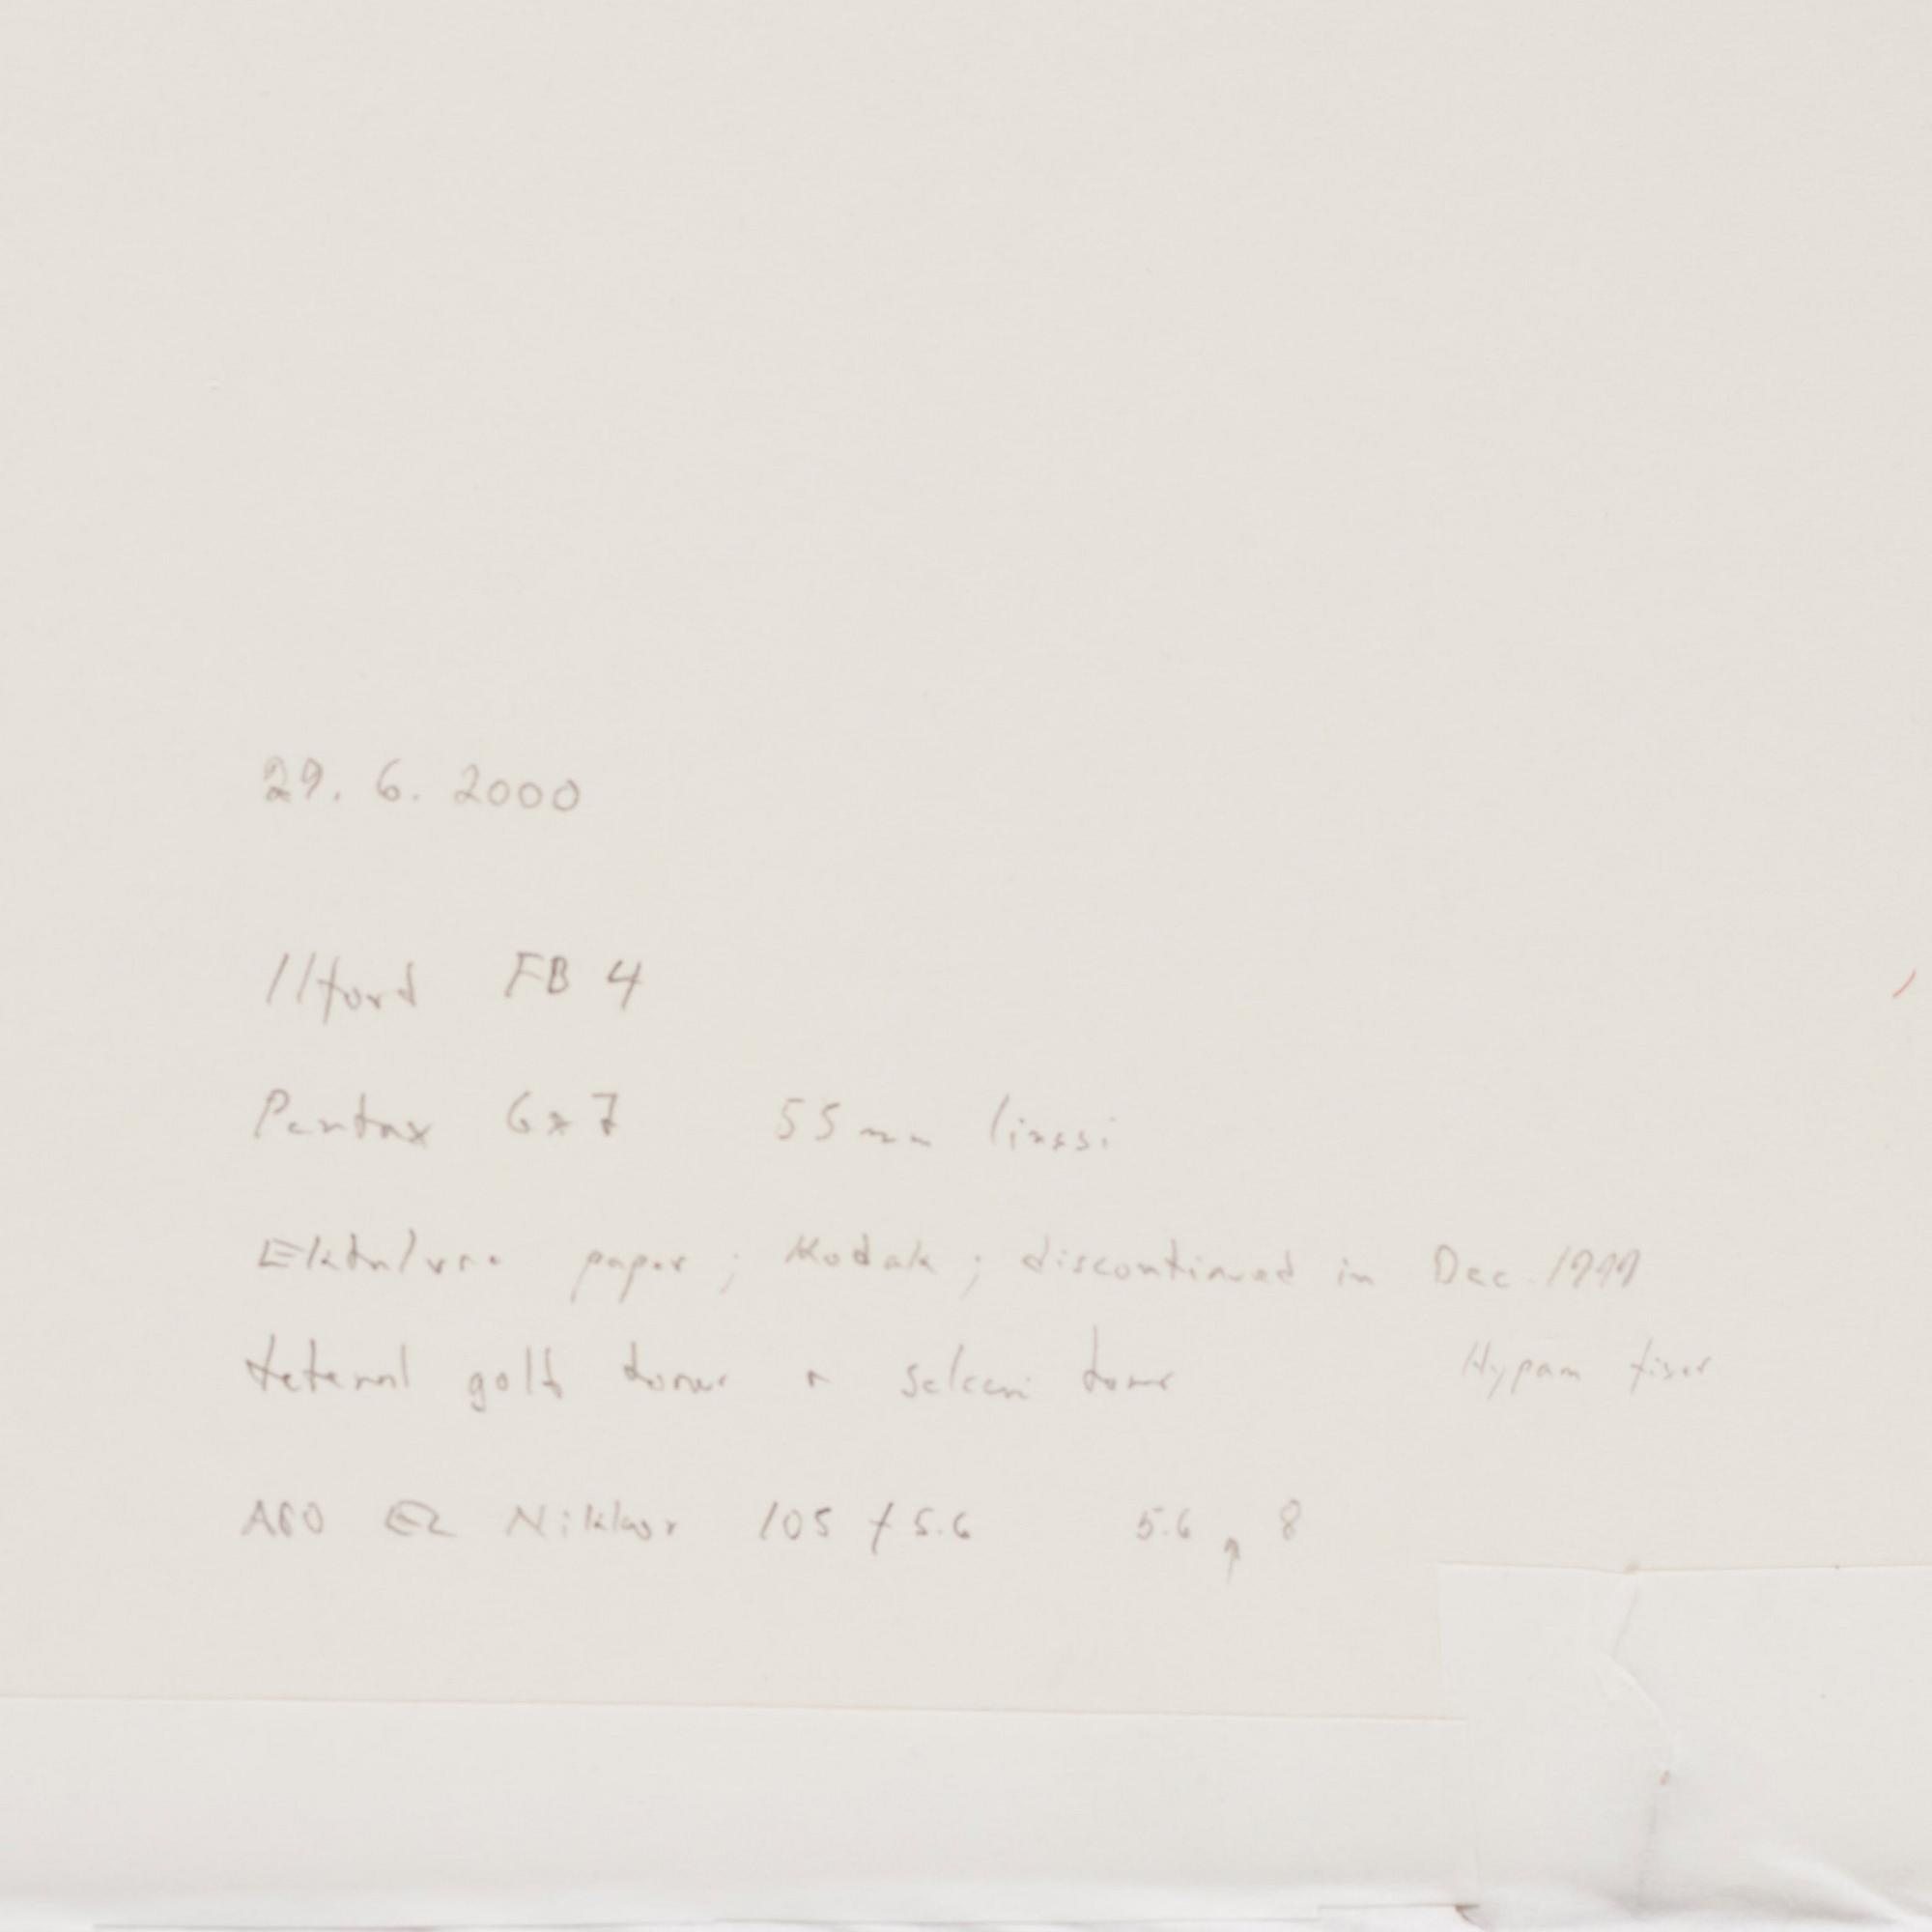 29. 6. 2000
Ilford FB 4
Pentax 6x7 55mm linssi
Ektalure paper ; Kodak ; discontinued in Dec. 1999
tetenal gold toner selen toner Hypam fixer
APO EL Nikkor 105 f 5.6 5.6 ↑ 8